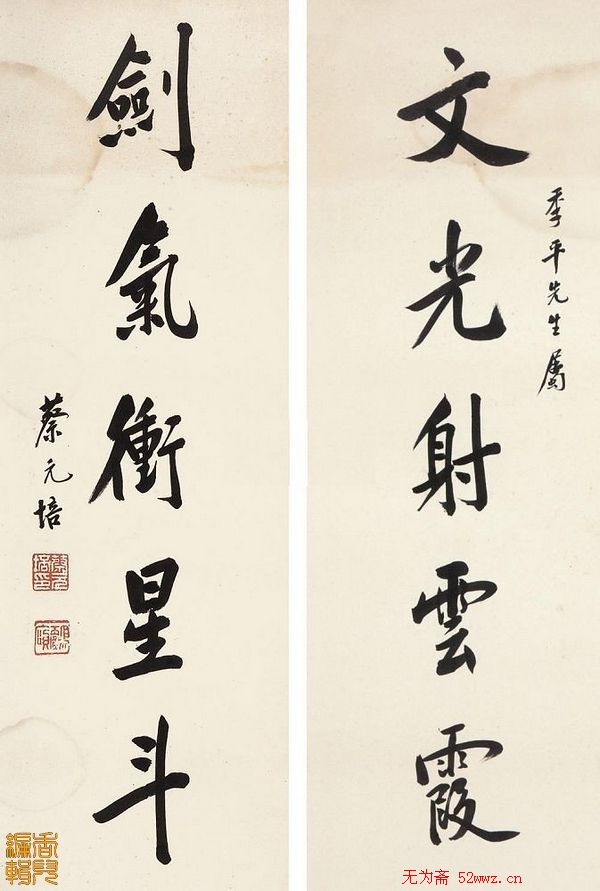 季平先生屬
文光射雲霞
劍氣衝星斗
蔡元培
無为斋 52wwz.cn